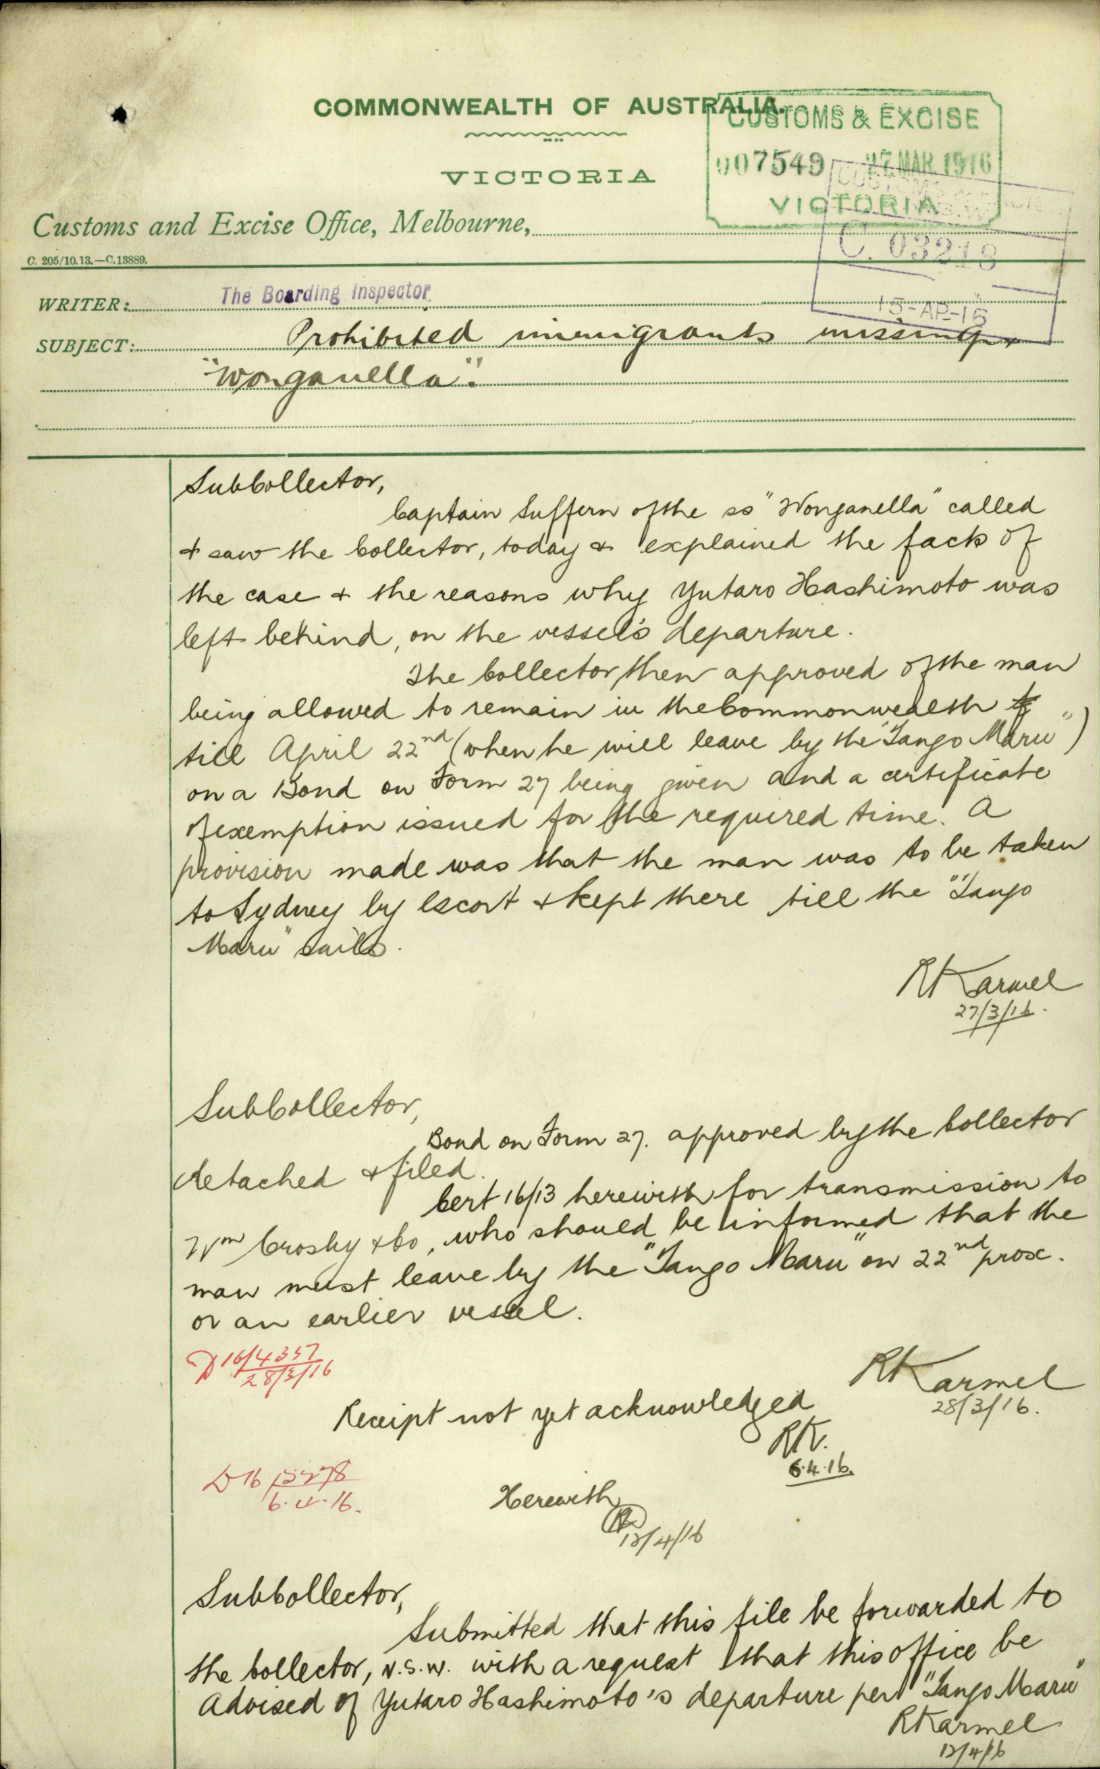 COMMONWEALTH OF AUSTRALIA.
CUSTOMS & EXCISE
007549 27 MAR 1916
VICTORIA
VICTORIA
Customs and Excise Office, Melbourne,
C. 03218
15-AP-16
C. 205/10.13.—C.13889.
WRITER: The Boarding Inspector
SUBJECT: Prohibited immigrants missing
"Wonganella".
SubCollector,
Captain Suffern of the ss "Wonganella" called
& saw the Collector, today & explained the facts of
the case & the reasons why Yutaro Hashimoto was
left behind, on the vessel's departure.
The Collector, then approved of the man
being allowed to remain in the Commonwealth
till April 22nd (when he will leave by the "Tango Maru")
on a Bond on Form 27 being given and a certificate
of exemption issued for the required time. A
provision made was that the man was to be taken
to Sydney by Escort & kept there till the "Tango
Maru" sails.
RKarmel
27/3/16.
SubCollector,
Bond on Form 27. approved by the Collector
detached & filed.
Cert 16/13 herewith for transmission to
Wm Crosby & Co, who should be informed that the
man must leave by the "Tango Maru" on 22nd prox.
or an earlier vessel.
D 16/4357
28/3/16
RKarmel
28/3/16.
Receipt not yet acknowledged
RK.
6.4.16.
D 16
6.4.16.
Herewith
12/4/16
SubCollector,
Submitted that this file be forwarded to
the Collector, N.S.W. with a request that this office be
advised of Yutaro Hashimoto's departure per "Tango Maru"
RKarmel
12/4/16